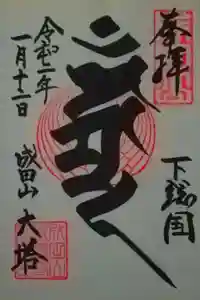 奉拝
下総国
令和二年
一月十二日
成田山
大塔